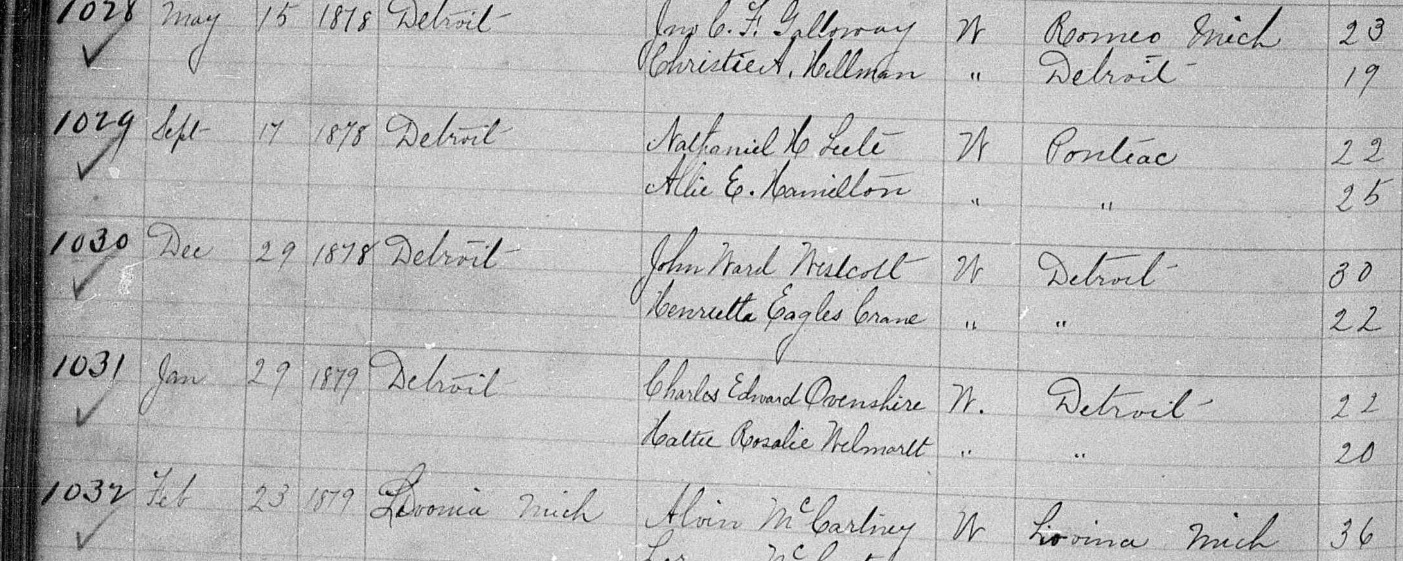 1028 May 15 1878 Detroit Jno C. F. Galloway W Romeo Mich 23
Christie A. Hillman " Detroit 19
1029 Sept 17 1878 Detroit Nathaniel H Leete W Pontiac 22
Allie E. Hamilton " " 25
1030 Dec 29 1878 Detroit John Ward Westcott W Detroit 30
Henrietta Eagles Crane " " 22
1031 Jan 29 1879 Detroit Charles Edward Ovenshire W. Detroit 22
Hattie Rosalie Welmartt " " 20
1032 Feb 23 1879 Livonia Mich Alvin McCartney W Livonia Mich 36